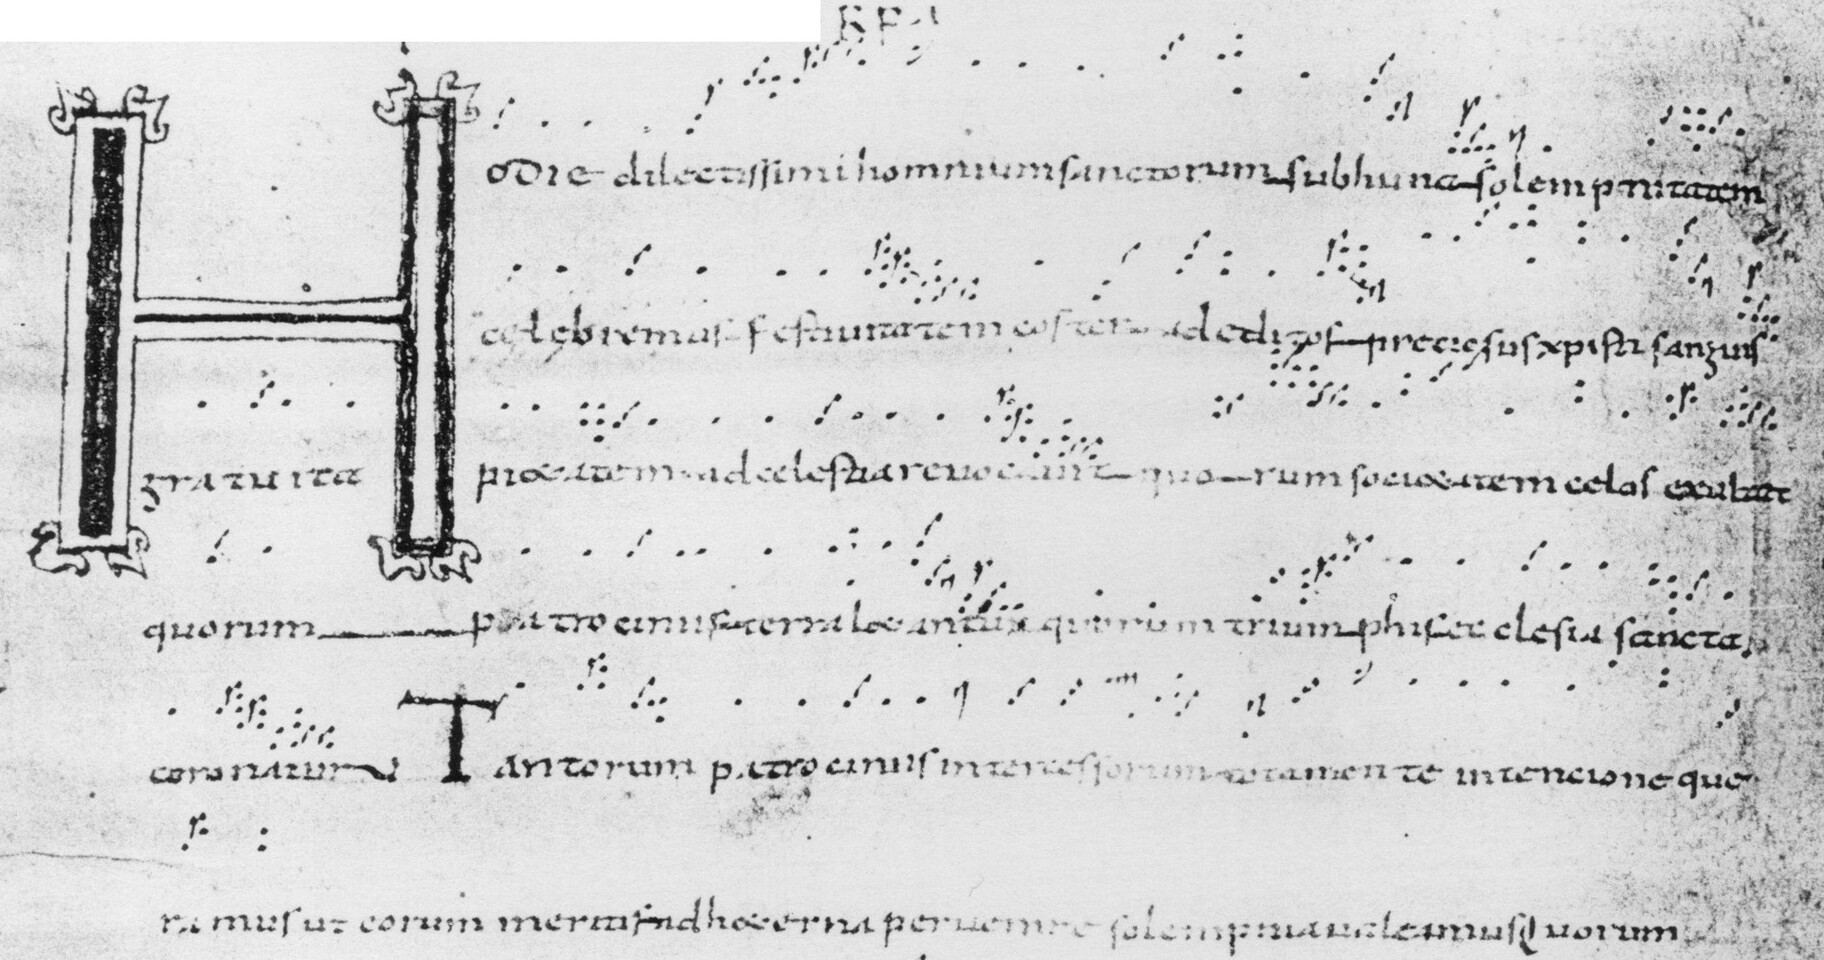 HODIE dilectissimi homnium sanctorum sub huna solempnitatem
celebremus festiuitatem precrosus xpisti sanguis
gratuita pietatem ad celestia reuocauit quorum societatem celos exultat
quorum patrociniis terra letantur quorum triumphis ecclesia sancta
coronatur Tantorum patrociniis intercessorum tota mente intencione que
ramus ut eorum meritis ad heterna peruenire solempnia ualeamus Quorum